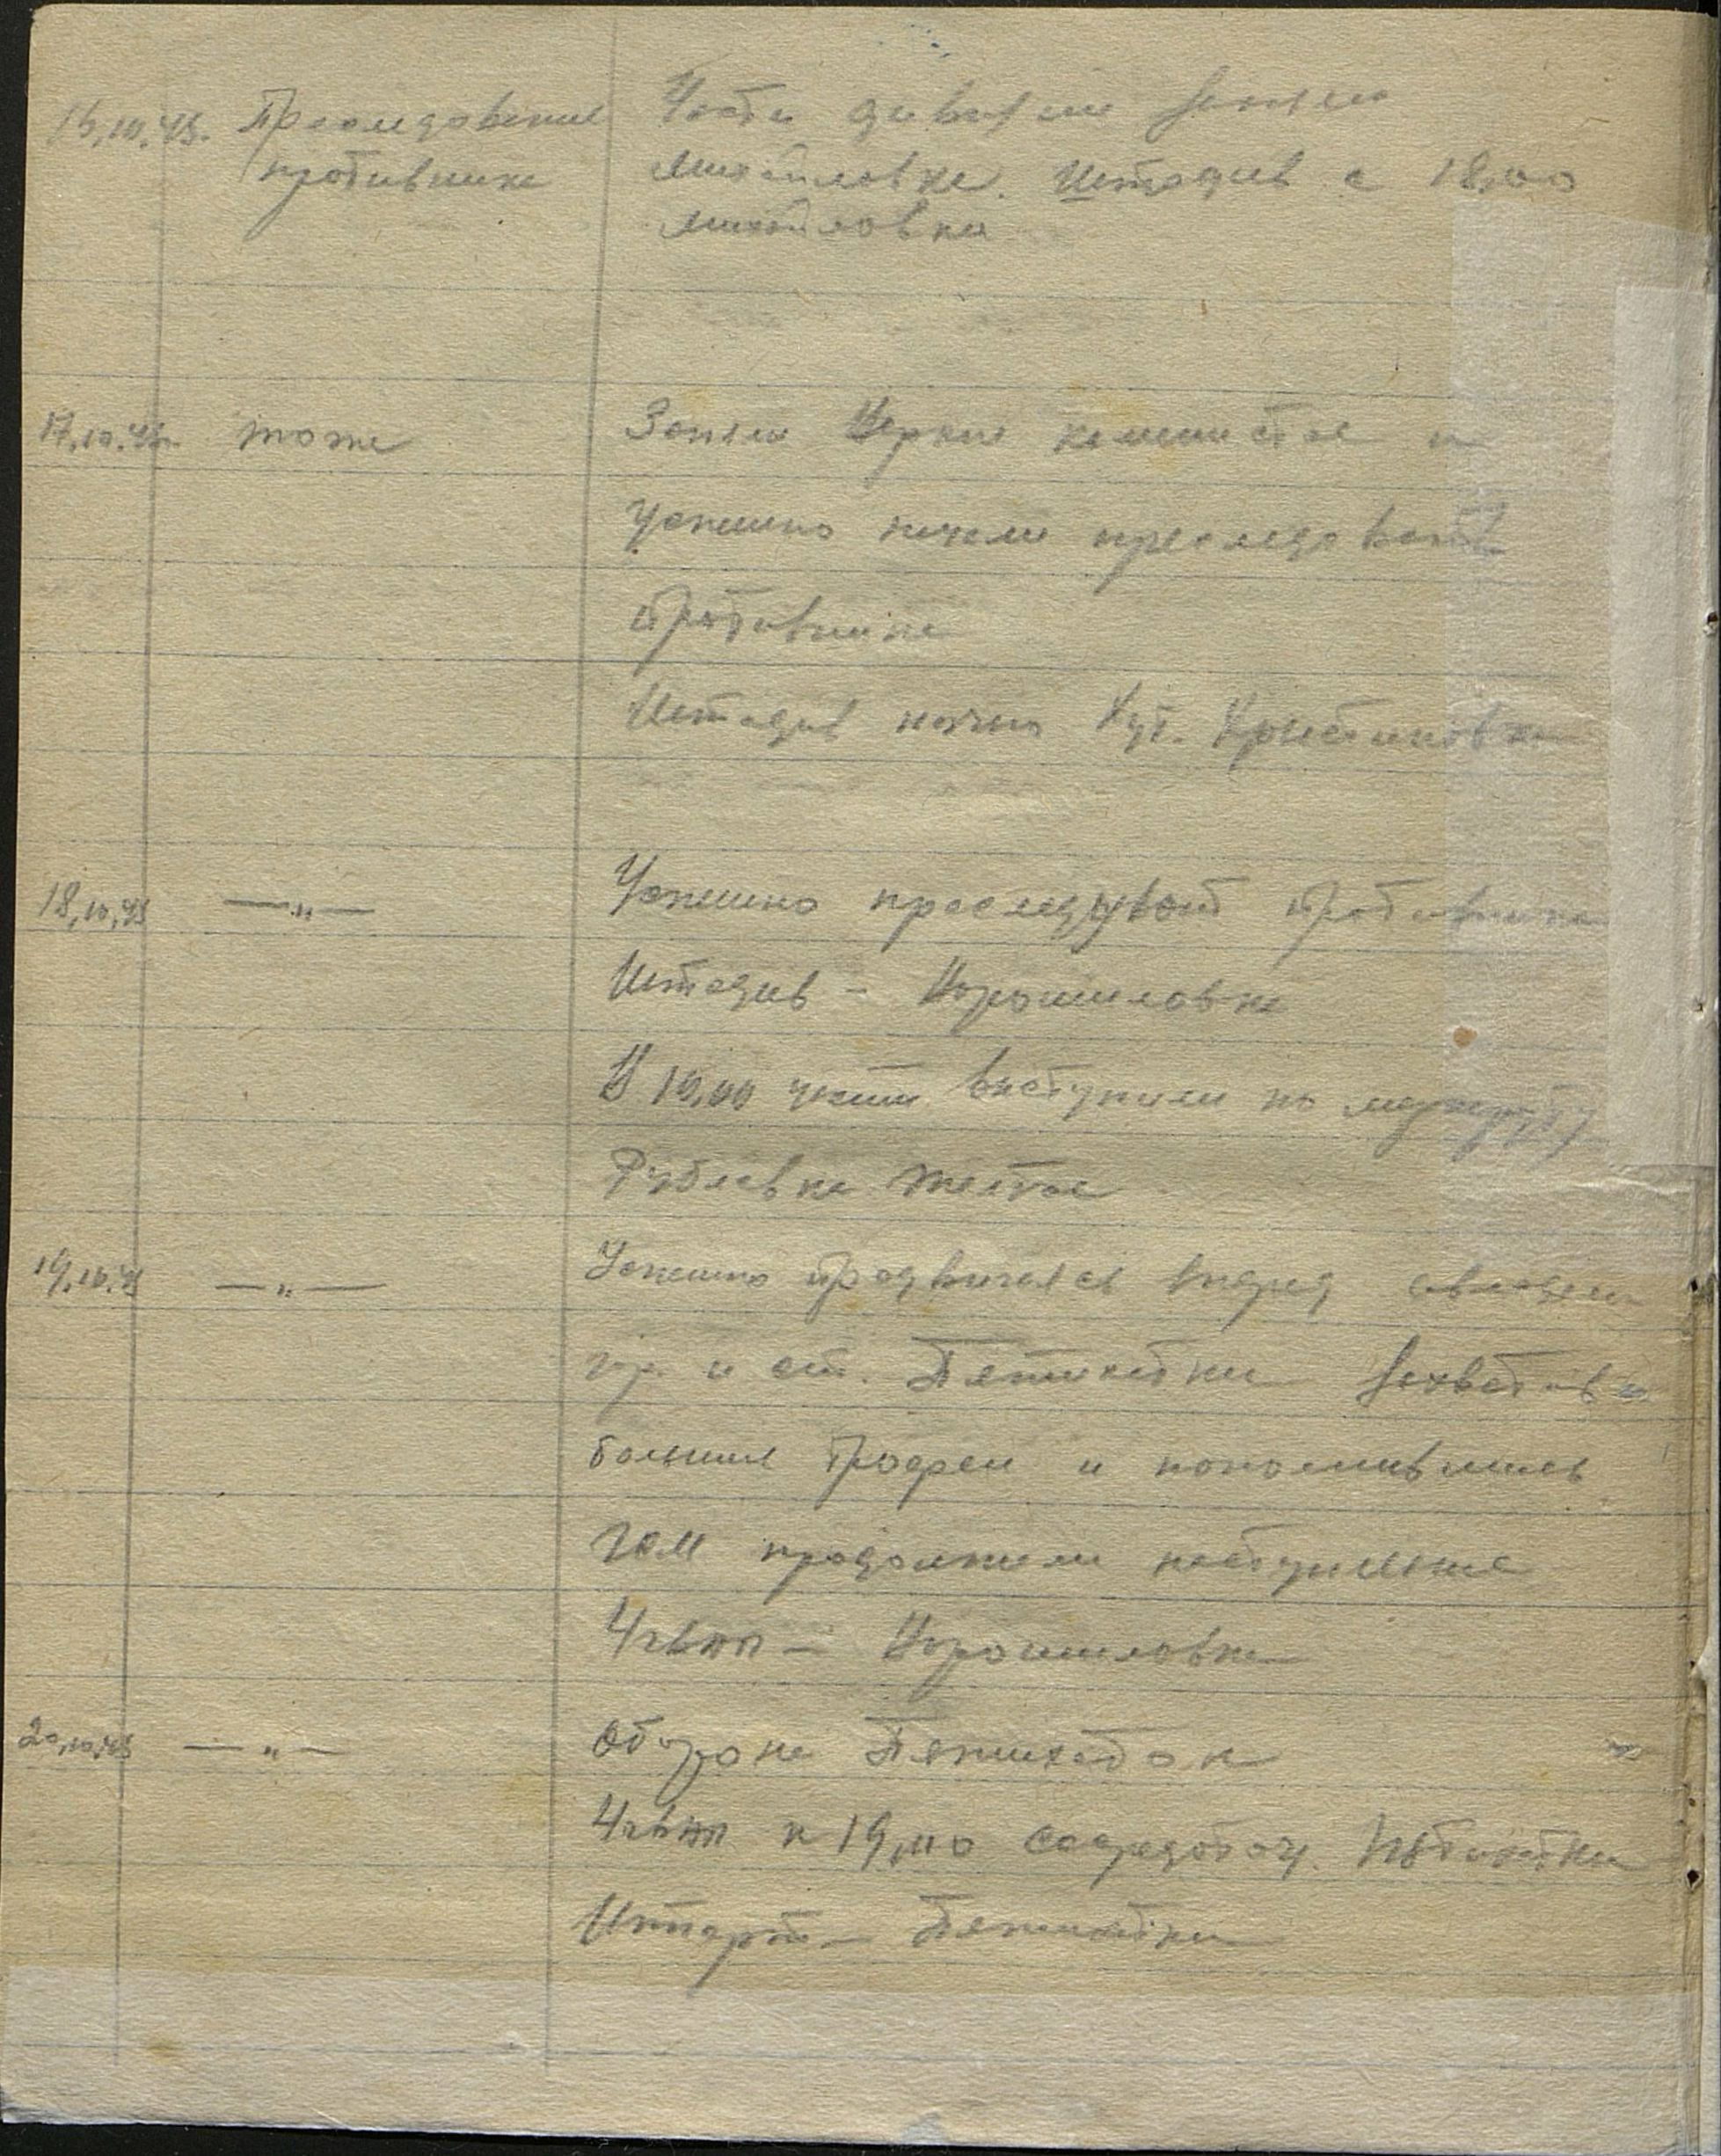 10.43. Преследование
противника
Части дивизии заняли
Михайловка. Штадив с 18,00
Михайловка
17.10.43. тоже
Заняли Верхне каменистое и
успешно начали преследовать
противника
Штадив ночью Хут.
18.10.43 —"—
Успешно преследуют противника
Штадив – Ворошиловка
В 19,00 части выступили по маршруту
Желтое
19.10.43 —"—
Успешно продвигаясь вперед овладели
гор. и ст. Пятихатки захватов
большие трофеи и пополнившись
ГСМ продолжили наступление
– Ворошиловка
20.10.43 —"—
Оборона Пятихаток
к 19,00 сосредоточ. Пятихатки
Пятихатки